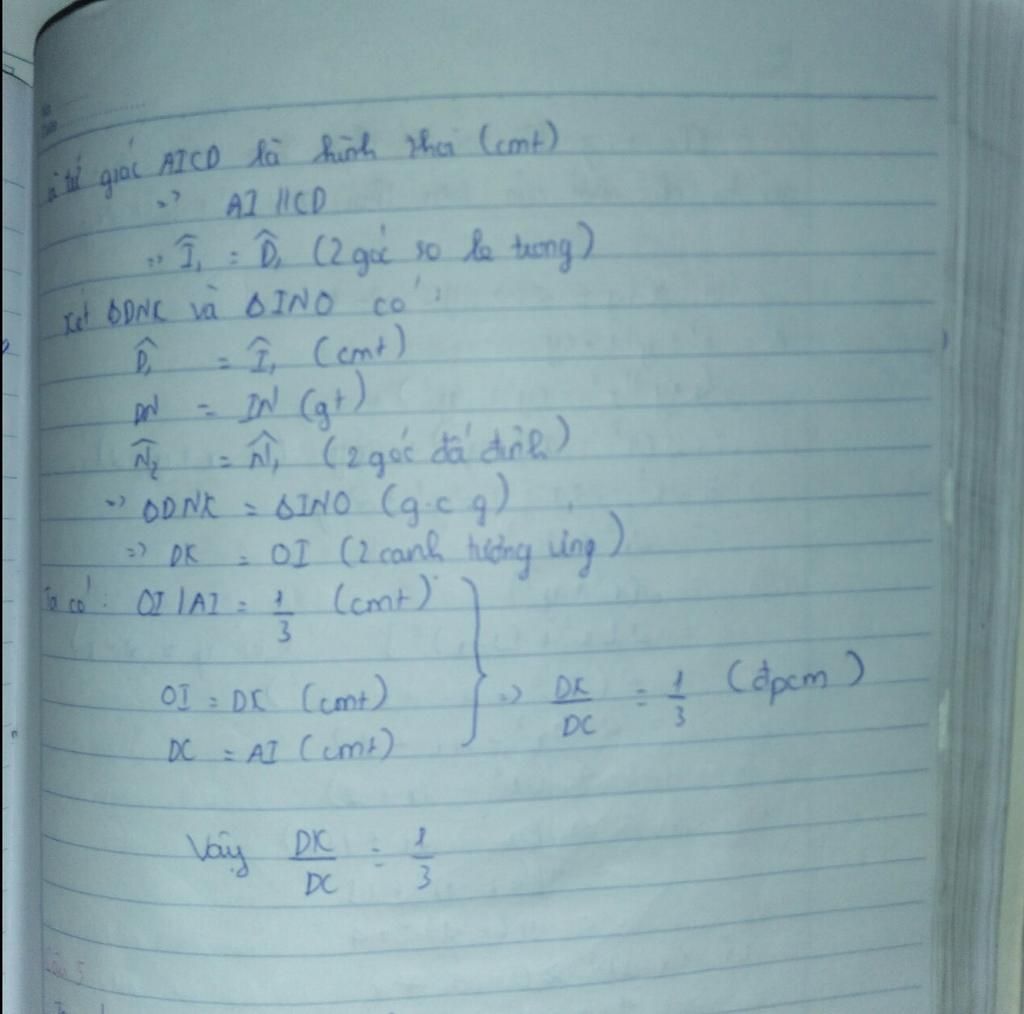 tứ giác AICD là hình thoi (cmt)
=> AI // CD
=> Î₁ = D̂₁ (2 góc so le trong)
Xét ΔDNK và ΔINO có :
D̂₁ = Î₁ (cmt)
DN = IN (gt)
N̂₂ = N̂₁ (2 góc đđ đỉnh)
=> ΔDNK = ΔINO (g.c g)
=> DK = OI (2 cạnh tương ứng)
Ta có : OI / AI = 1/3 (cmt)
OI = DK (cmt)
DC = AI (cmt)
=> DK/DC = 1/3 (đpcm)
Vậy DK/DC = 1/3
Câu 5